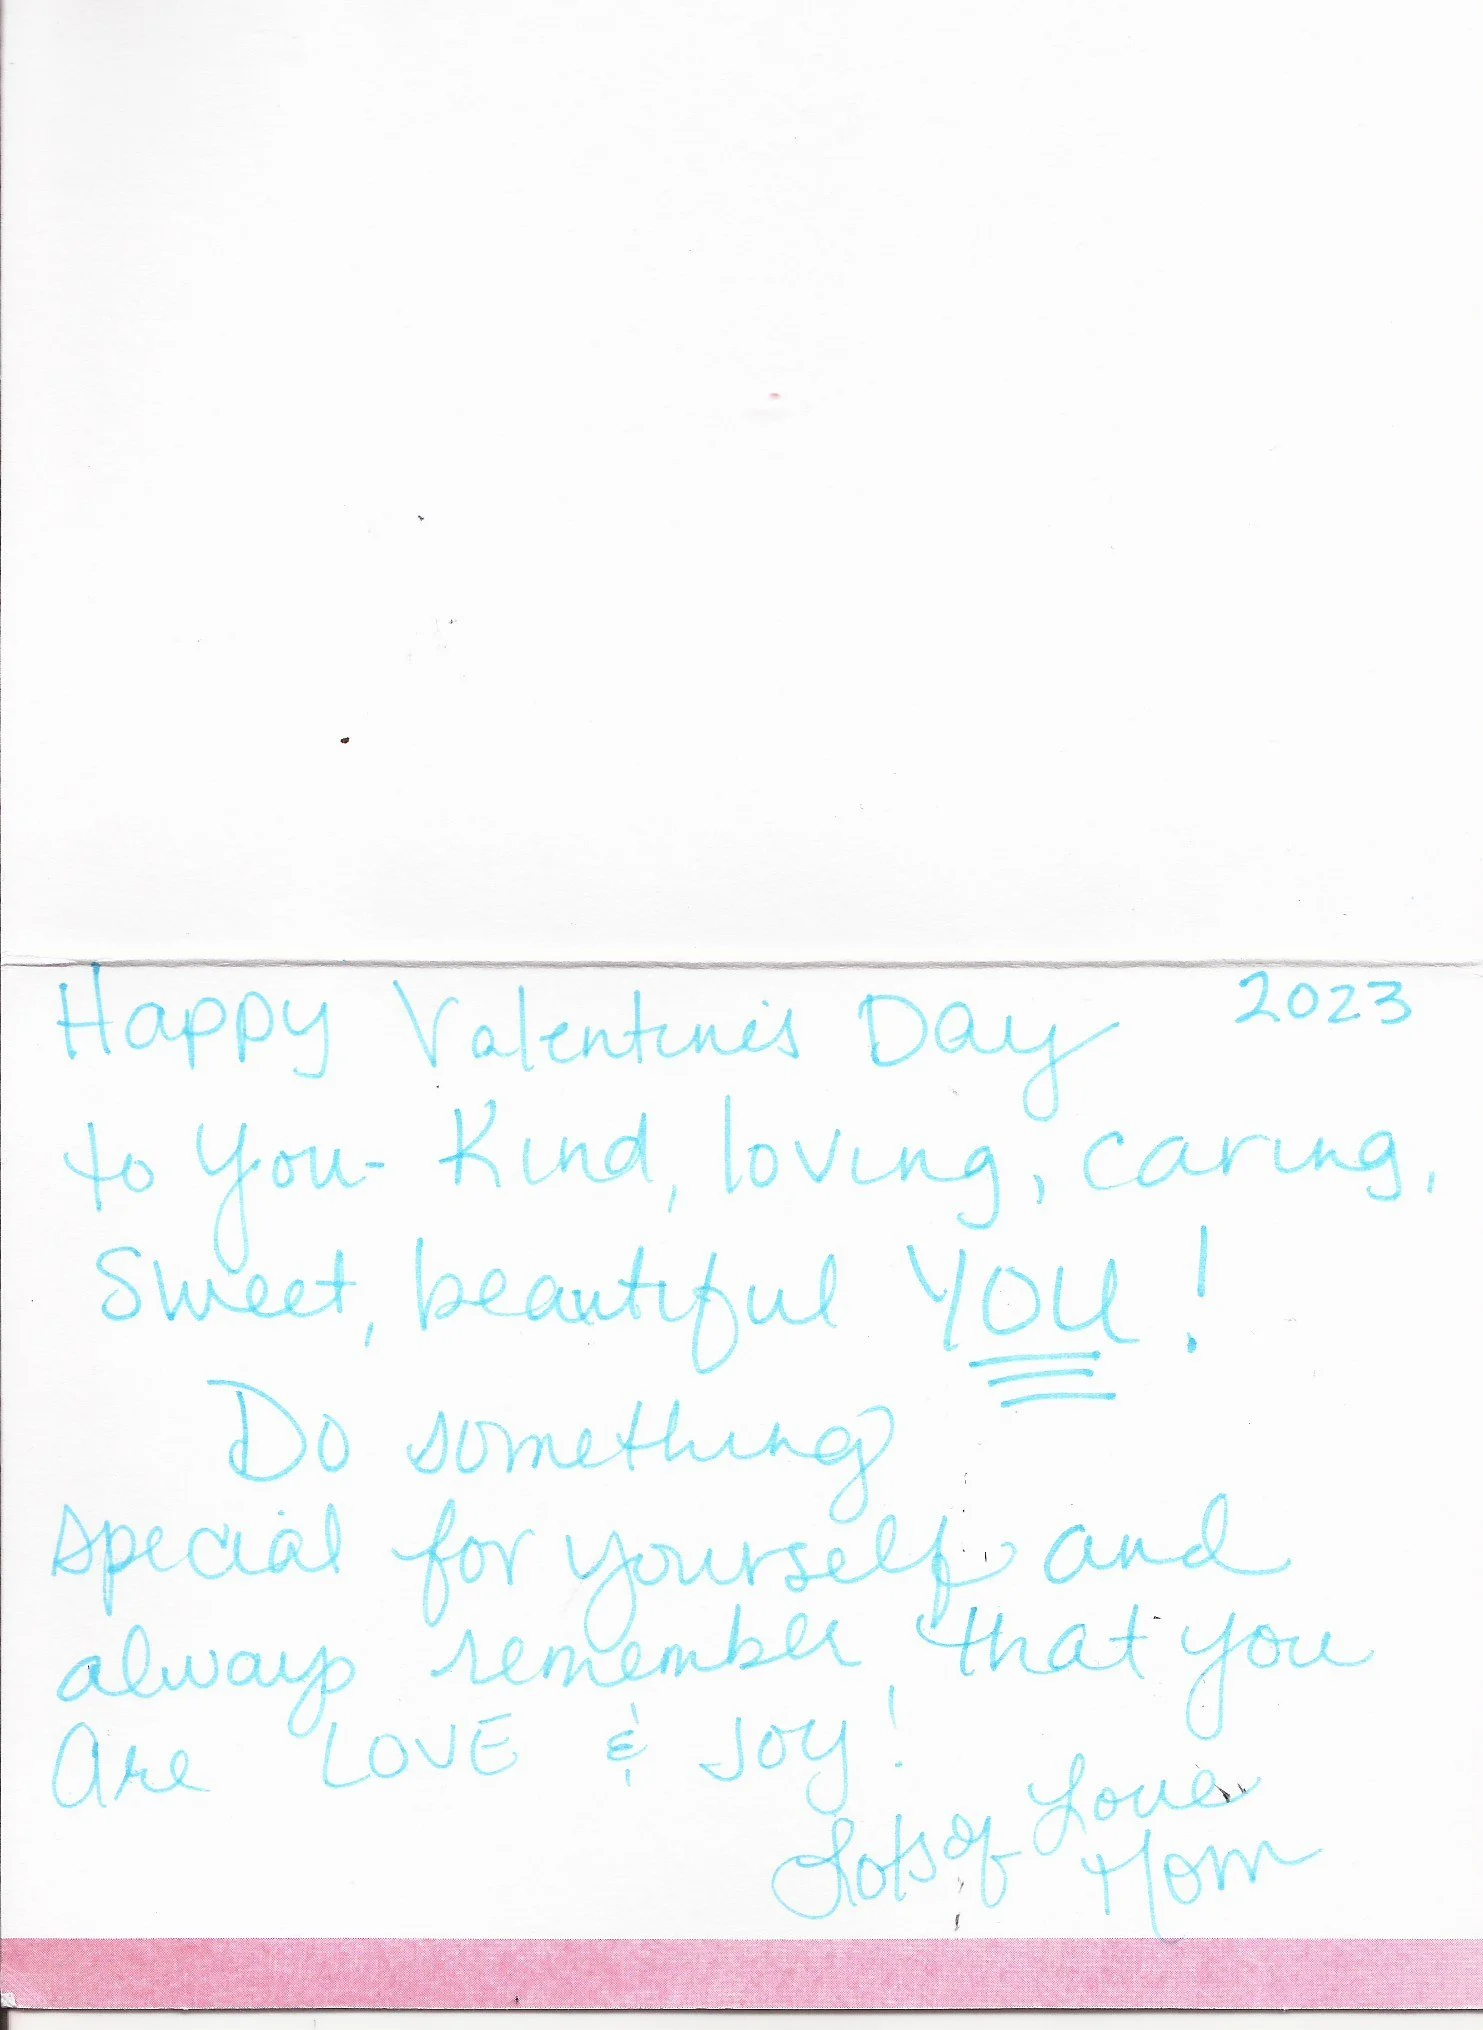 Happy Valentine's Day 2023
to you - Kind, loving, caring,
Sweet, beautiful YOU!
Do something
special for yourself and
always remember that you
are LOVE & JOY!
Lots of Love
Mom